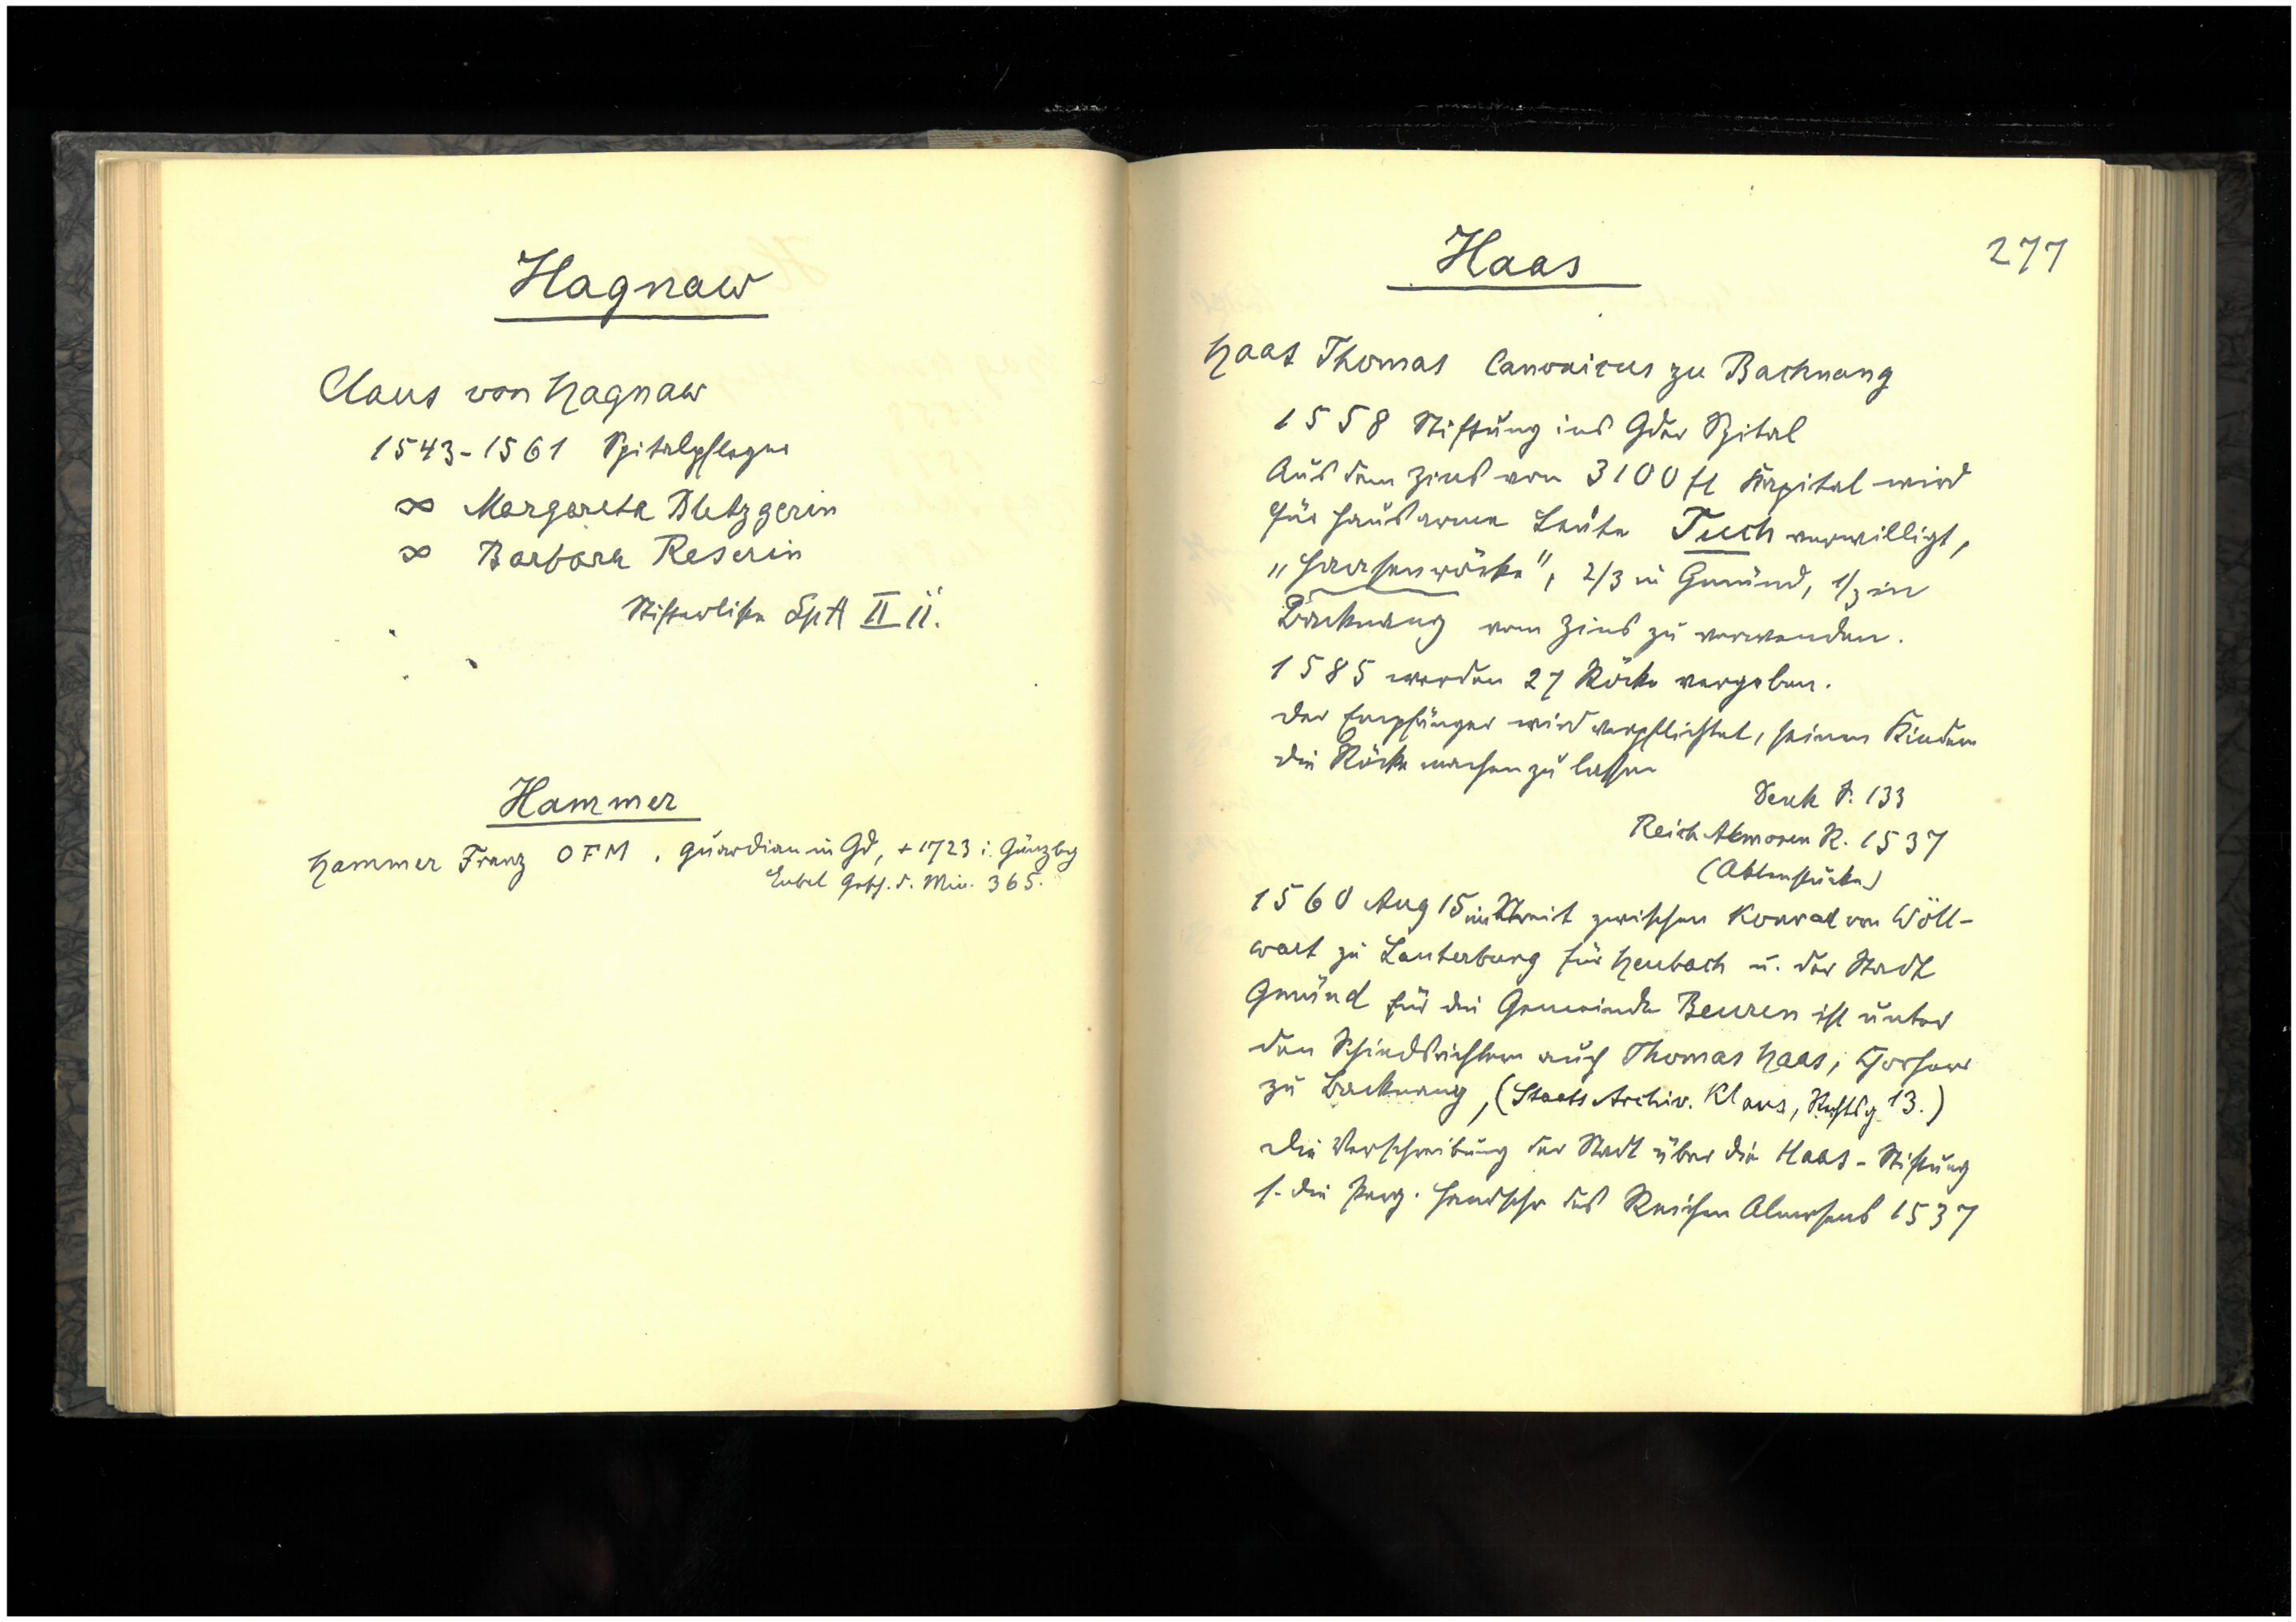 Hagnaw
Claus von Hagnaw
1543-1561 Spitalpfleger
∞ Margareta Metzgerin
∞ Barbara Reserin
Stifterliste SpA II ii.
Hammer
Hammer Franz OFM, Guardian in Gd, + 1723 i. Günzbg
Eubel Gesch. d. Min. 365.
277
Haas
Haas Thomas Canonicus zu Backnang
1558 Stiftung ins Gder Spital
Aus dem Zins von 3100 fl Kapital wird
für hausarme Leute Tuch verwilligt,
„Haasenröcke", 2/3 in Gmünd, 1/3 in
Backnang vom Zins zu verwenden.
1585 werden 27 Röcke vergeben.
Der Empfänger wird verpflichtet, seinen Kindern
die Röcke machen zu lassen
Denk S. 133
Reich Almosen R. 1537
1560 Aug 15 im Streit zwischen Konrad von Wöll-
wart zu Lauterburg für Heubach u. der Stadt
Gmünd für die Gemeinde Beuren ist unter
den Schiedsrichtern auch Thomas Haas, Chorherr
zu Backnang, (Staats Archiv. Klaus, 13.)
Die Verschreibung der Stadt über die Haas-Stiftung
s. die Perg. Handschr des Reichen Almosens 1537